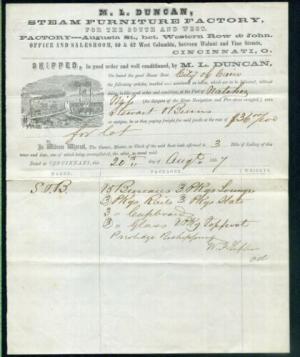 M. L. DUNCAN,
STEAM FURNITURE FACTORY,
FOR THE SOUTH AND WEST.
FACTORY—Augusta St., bet. Western Row & John.
OFFICE AND SALESROOM, 60 & 62 West Columbia, between Walnut and Vine Streets,
CINCINNATI, O.
SHIPPED, In good order and well conditioned, by M. L. DUNCAN,
On board the good Steam Boat City of
the following articles, marked and numbered as below, which are to be delivered, without
delay in like good order and condition, at the Port of Natchez
(the dangers of the River Navigation and Fire only excepted,) unto
Stewart
or assigns, he or they paying freight for said goods at the rate of $36.00
for lot
In Witness Whereof, The Owner, Master, or Clerk of the said Boat hath affirmed to 3 Bills of Lading of
this tenor and date, one of which being accomplished, the other to stand void.
Dated at CINCINNATI, this 20th Augt 7
MARKS. PACKAGES.
S & B 15 Bureaus 3 Pkgs Lounge
3 Pkgs Rails 3 Pkgs Slats
3 " Cupboard
3 " Glass
Privilege Reshipping